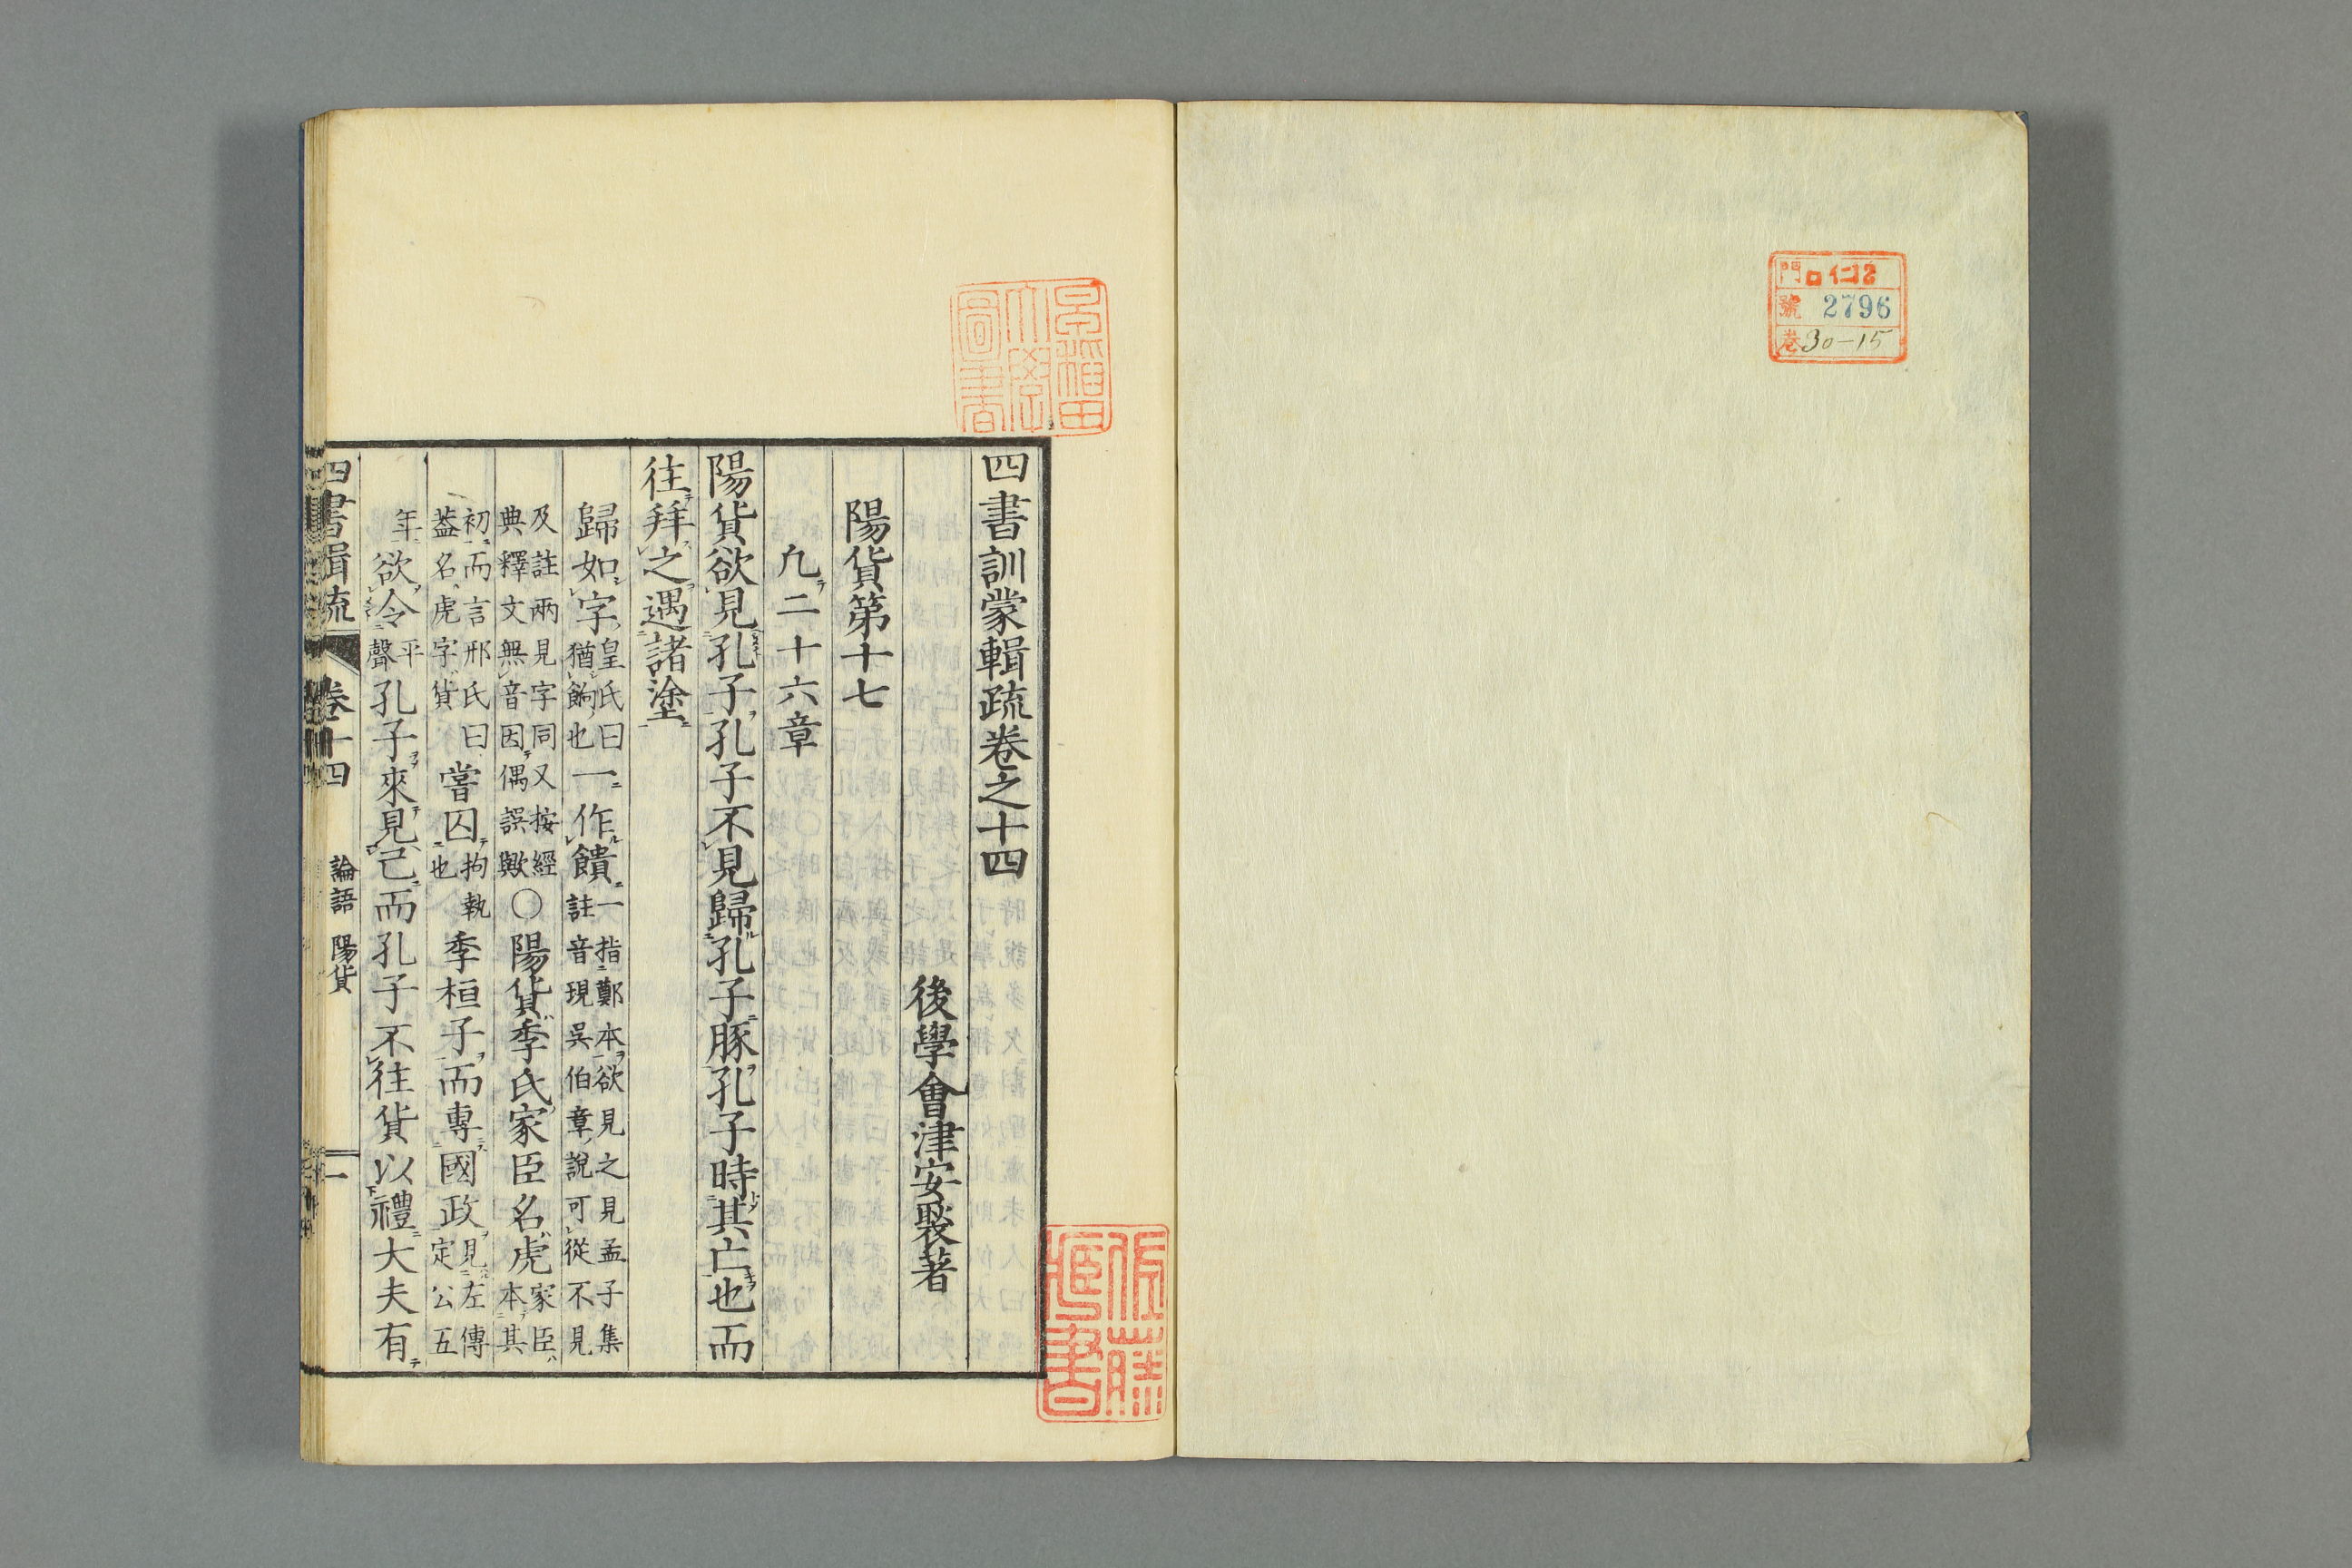 門 ロ仁12
號 2796
卷 30-15
早稲田大學圖書
四書訓蒙輯疏卷之十四
後學會津安褧著
陽貨第十七
凢二十六章
陽貨欲見孔子孔子不見歸孔子豚孔子時其亡也而
往拜之遇諸塗
歸如字皇氏曰猶餉也一作饋一指鄭本欲見之見孟子集註音現吳伯章說可從不見
及註兩見字同又按經典釋文無音因偶誤歟○陽貨季氏家臣名虎家臣本其
初而言邢氏曰葢名虎字貨嘗囚拘執也季桓子而專國政見左傳定公五
年欲令平聲孔子來見己而孔子不往貨以禮大夫有
四書輯疏 卷十四 論語 陽貨 一